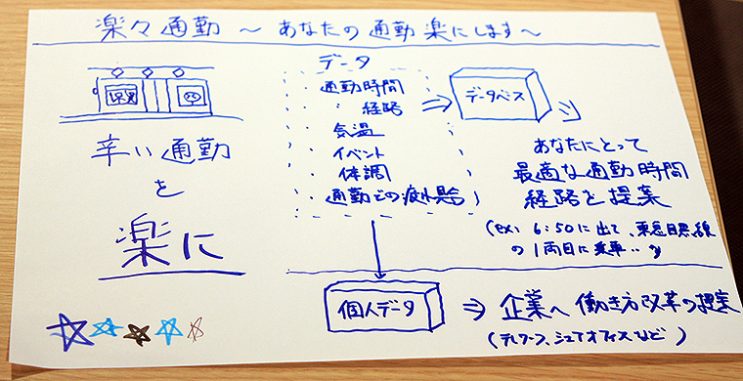 楽々通勤 ～ あなたの通勤楽にします～
辛い通勤
を
楽に
データ
通勤時間
〃 経路
気温
イベント
体調
通勤での疲れ具合
データベース
あなたにとって
最適な通勤時間
経路を提案
(ex. 6:50に出て、東急目黒線
の1両目に乗車‥
個人データ
⇒ 企業へ 働き方改革の提案
(テレワーク、シェアオフィスなど)